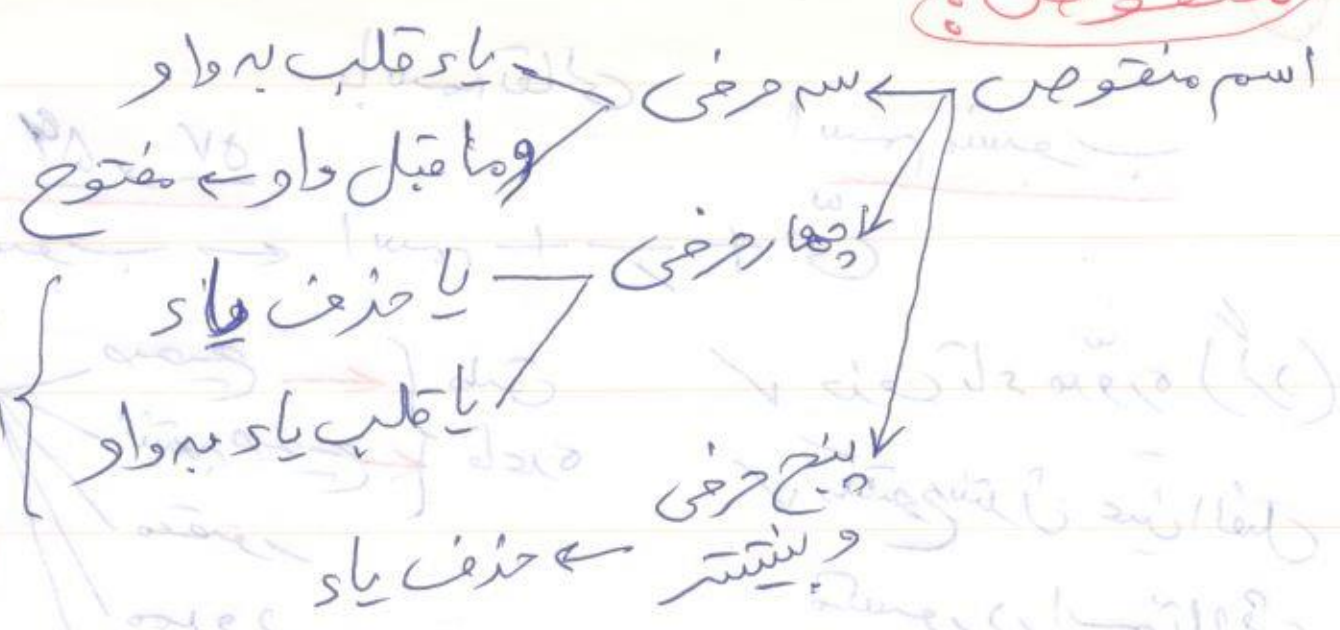 منقوص:
اسم منقوص ← سه حرفی
یاء قلب به واو
وما قبل واو ← مفتوح
چهار حرفی
یا حذف یاء
یا قلب یاء به واو
پنج حرفی
و بیشتر ← حذف یاء